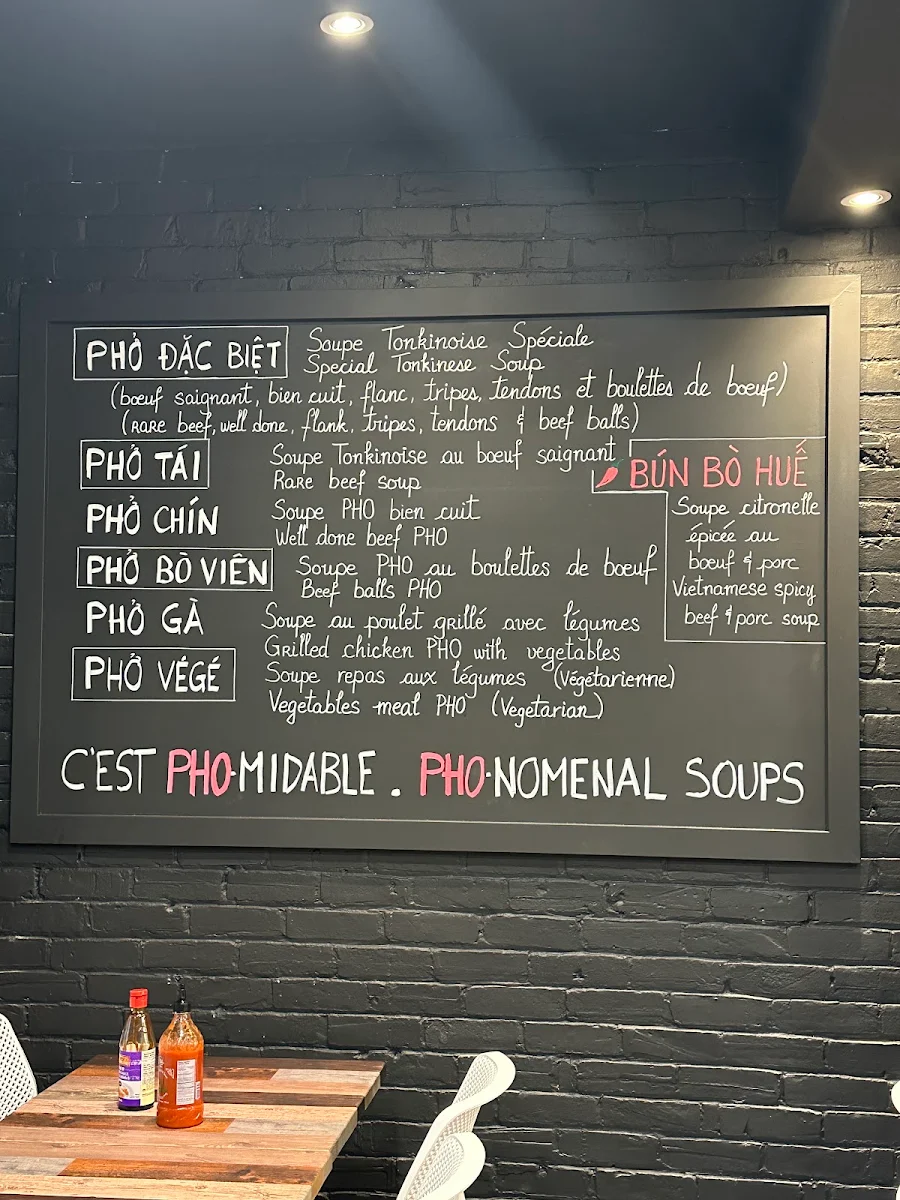 PHỞ ĐẶC BIỆT Soupe Tonkinoise Spéciale
Special Tonkinese Soup
(boeuf saignant, bien cuit, flanc, tripes, tendons et boulettes de boeuf)
(RARE beef, well done, flank, tripes, tendons & beef balls)
PHỞ TÁI Soupe Tonkinoise au boeuf saignant
Rare beef soup
PHỞ CHÍN Soupe PHO bien cuit
Well done beef PHO
PHỞ BÒ VIÊN Soupe PHO au boulettes de boeuf
Beef balls PHO
PHỞ GÀ Soupe au poulet grillé avec légumes
Grilled chicken PHO with vegetables
PHỞ VÉGÉ Soupe repas aux légumes (Végétarienne)
Vegetables meal PHO (Vegetarian)
BÚN BÒ HUẾ
Soupe citronelle
épicée au
boeuf & porc
Vietnamese spicy
beef & porc soup
C'EST PHO·MIDABLE . PHO·NOMENAL SOUPS